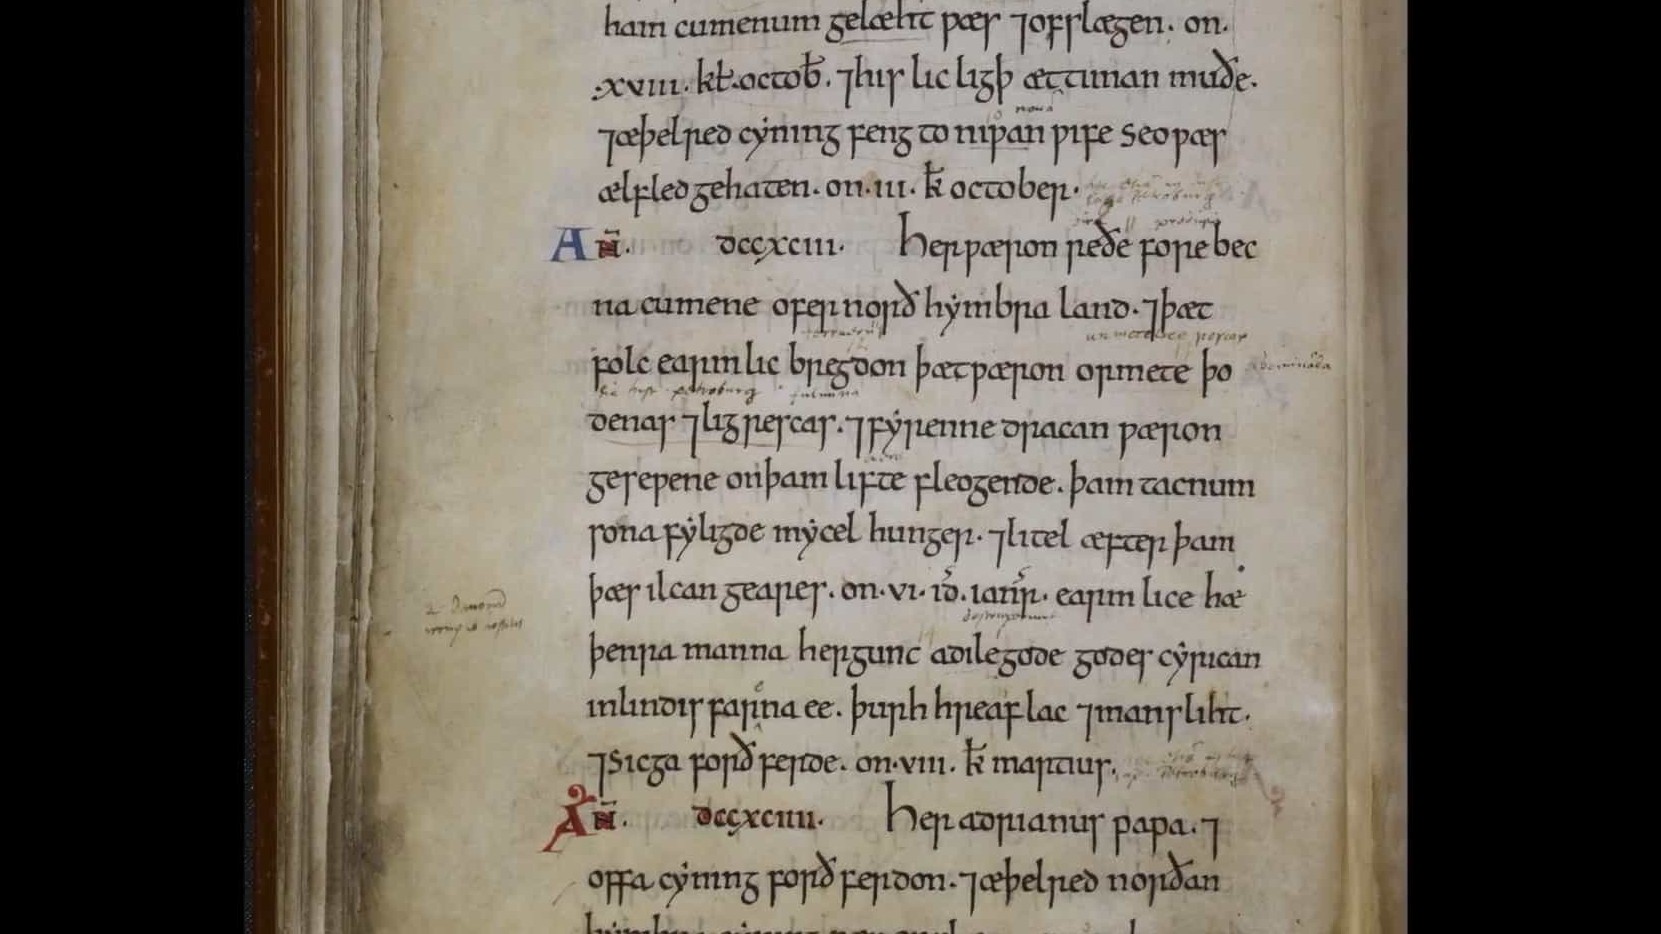 ham cumenum gelæht ƿæs ⁊ofslægen. on.
.xviii. kł. octob̄. ⁊his lic ligþ æt tinan muðe.
⁊æþelred cẏning feng to niƿan ƿife seo ƿæs
ælfled gehaten. on .iii. k̄ october.
AN̄. dccxciii. Her ƿæron reðe forebec
na cumene ofer norð hẏmbra land. ⁊þæt
folc earmlic bregdon þæt ƿæron ormete þo
denas ⁊ligrescas. ⁊fẏrenne dracan ƿæron
geseƿene on þam lifte fleogende. þam tacnum
sona fẏligde mẏcel hunger. ⁊litel æfter þam
þæs ilcan geares. on .vi. id̄. ianr̄. earmlice hæ
þenra manna hergunc adilegode godes cẏrican
in lindisfarna ee. þurh hreaflac ⁊mansliht.
⁊Sicga forðferde. on .viii. k̄ martius.
AN̄. dccxciiii. Her adrianus papa. ⁊
offa cẏning forð ferdon. ⁊æþelred norðan